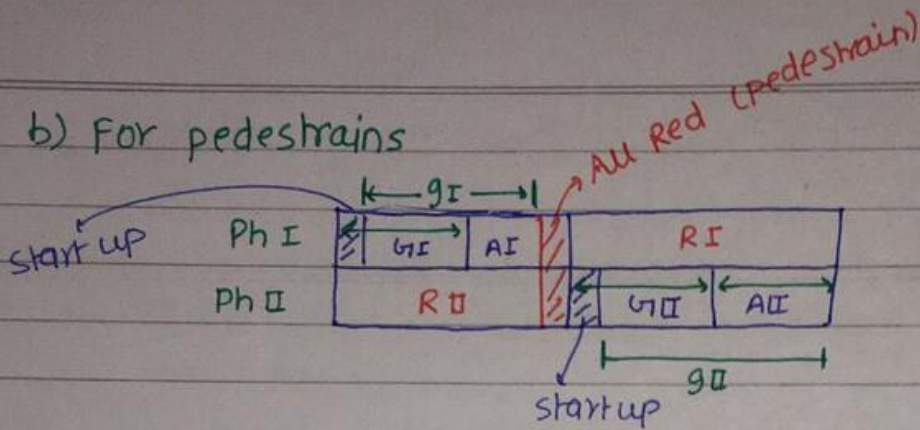 b) For pedestrains
All Red (pedestrain)
gI
start up
Ph I
GI
AI
R I
Ph II
R II
GII
AII
gII
start up